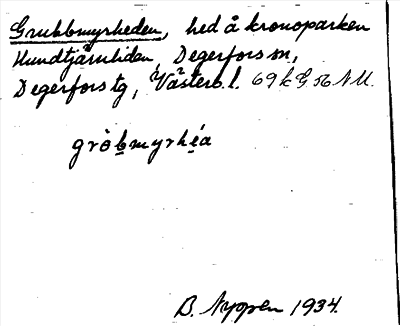 Grubbmyrheden, hed å kronoparken
Hundtjärnliden, Degerfors sn,
Degerfors tg, Västerb. l. 69 k G 56 NU.
gròbmyrhéa
B. Nyppen 1934.